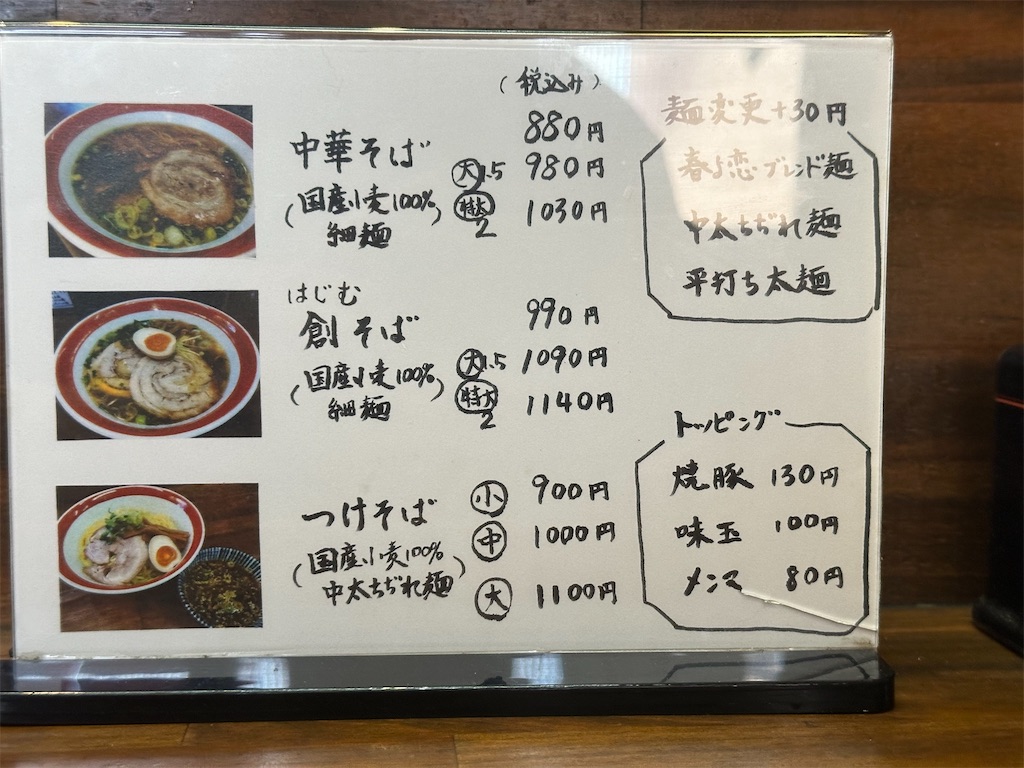 (税込み)
中華そば 880円
大1.5 980円
(国産小麦100%
細麺)
特大2 1030円
はじむ
創そば 990円
大1.5 1090円
(国産小麦100%
細麺)
特大2 1140円
つけそば
小 900円
中 1000円
(国産小麦100%
中太ちぢれ麺)
大 1100円
麺変更+30円
春よ恋ブレンド麺
中太ちぢれ麺
平打ち太麺
トッピング
焼豚 130円
味玉 100円
メンマ 80円